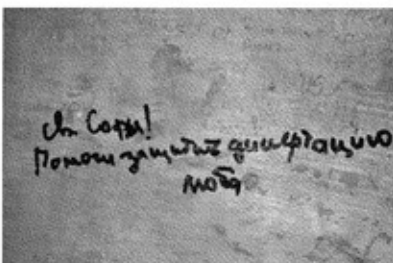 Св. Софья!
Помоги защитить диссертацию